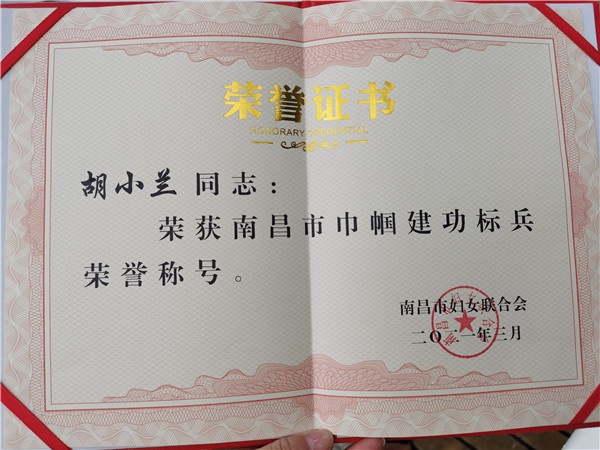 荣誉证书
HONORARY CREDENTIAL
胡小兰 同志：
荣获南昌市巾帼建功标兵
荣誉称号。
南昌市妇女联合会
二〇二一年三月